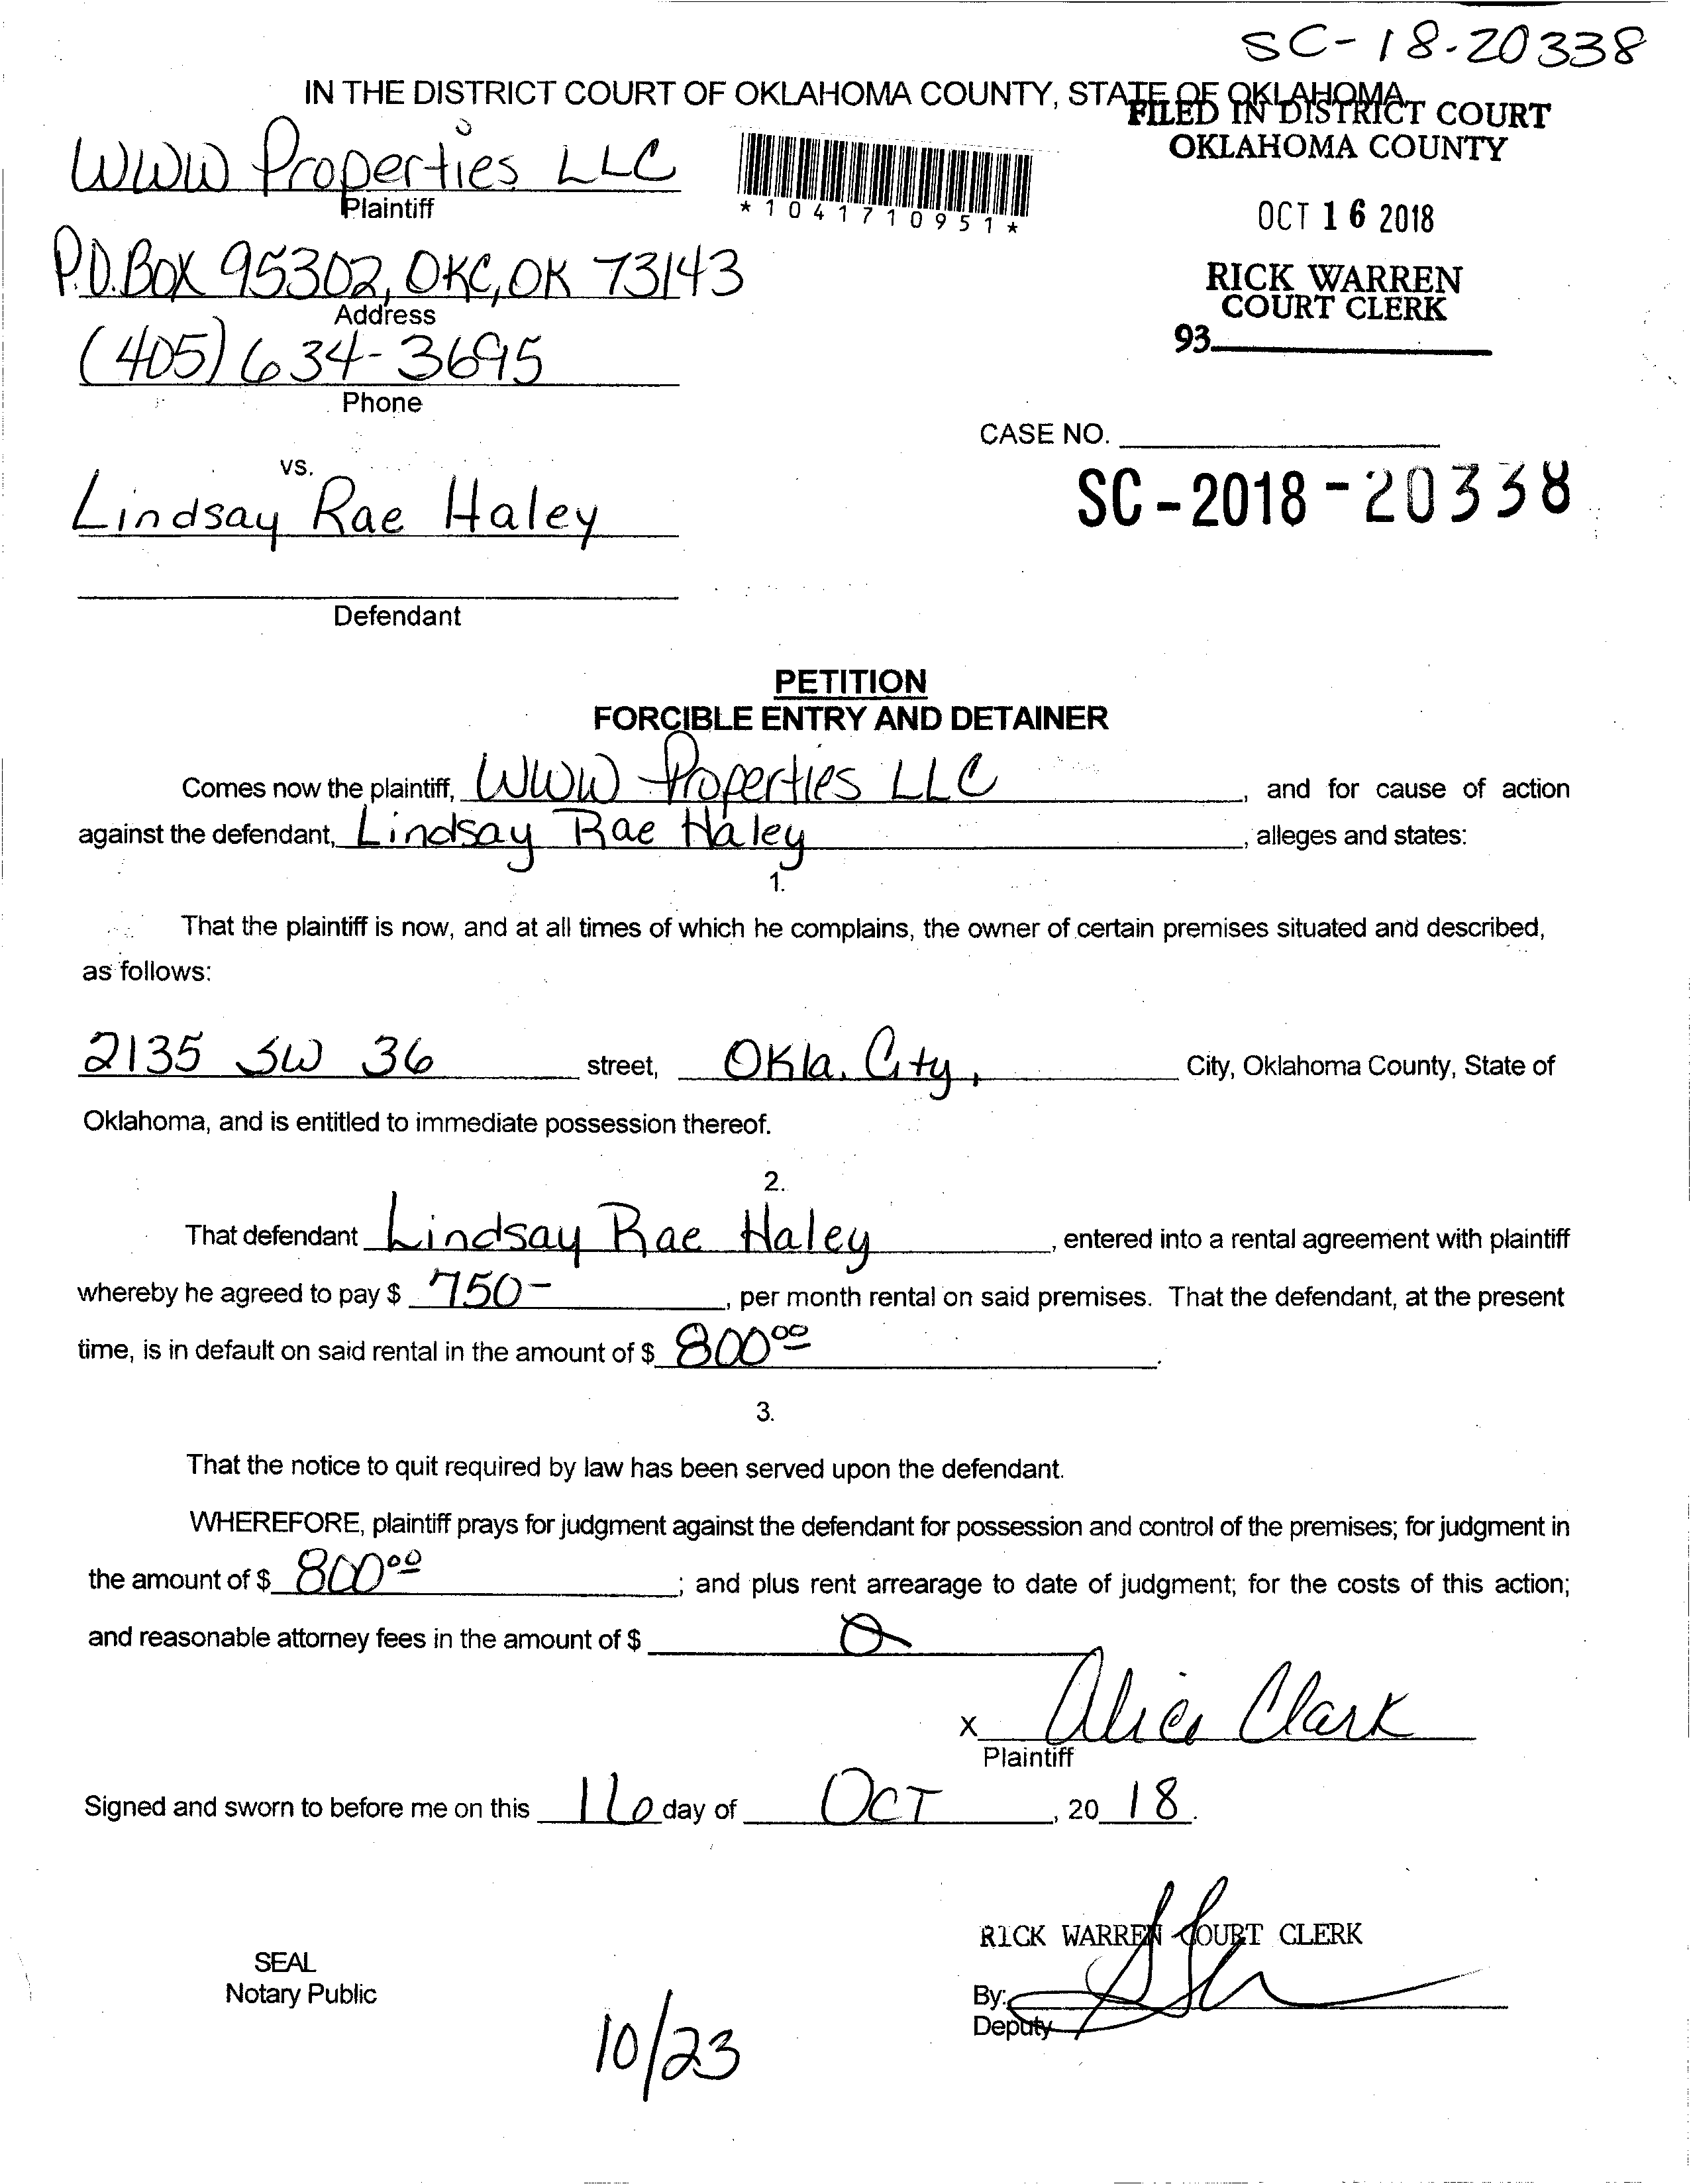 SC-18-20338
IN THE DISTRICT COURT OF OKLAHOMA COUNTY, STATE OF OKLAHOMA
FILED IN DISTRICT COURT
OKLAHOMA COUNTY
WWW Properties LLC
Plaintiff
*1041710951*
OCT 16 2018
P.O. BOX 95302, OKC, OK 73143
Address
RICK WARREN
COURT CLERK
93
(405) 634-3695
Phone
CASE NO.
SC-2018-20338
vs.
Lindsay Rae Haley
Defendant
PETITION
FORCIBLE ENTRY AND DETAINER
Comes now the plaintiff, WWW Properties LLC, and for cause of action
against the defendant, Lindsay Rae Haley, alleges and states:
1.
That the plaintiff is now, and at all times of which he complains, the owner of certain premises situated and described,
as follows:
2135 SW 36 street, Okla. City, City, Oklahoma County, State of
Oklahoma, and is entitled to immediate possession thereof.
2.
That defendant Lindsay Rae Haley, entered into a rental agreement with plaintiff
whereby he agreed to pay $ 750-, per month rental on said premises. That the defendant, at the present
time, is in default on said rental in the amount of $ 800 00.
3.
That the notice to quit required by law has been served upon the defendant.
WHEREFORE, plaintiff prays for judgment against the defendant for possession and control of the premises; for judgment in
the amount of $ 800 00; and plus rent arrearage to date of judgment; for the costs of this action;
and reasonable attorney fees in the amount of $ 0
X Alice Clark
Plaintiff
Signed and sworn to before me on this 16 day of OCT, 20 18.
RICK WARREN COURT CLERK
SEAL
Notary Public
By:
Deputy
10/23